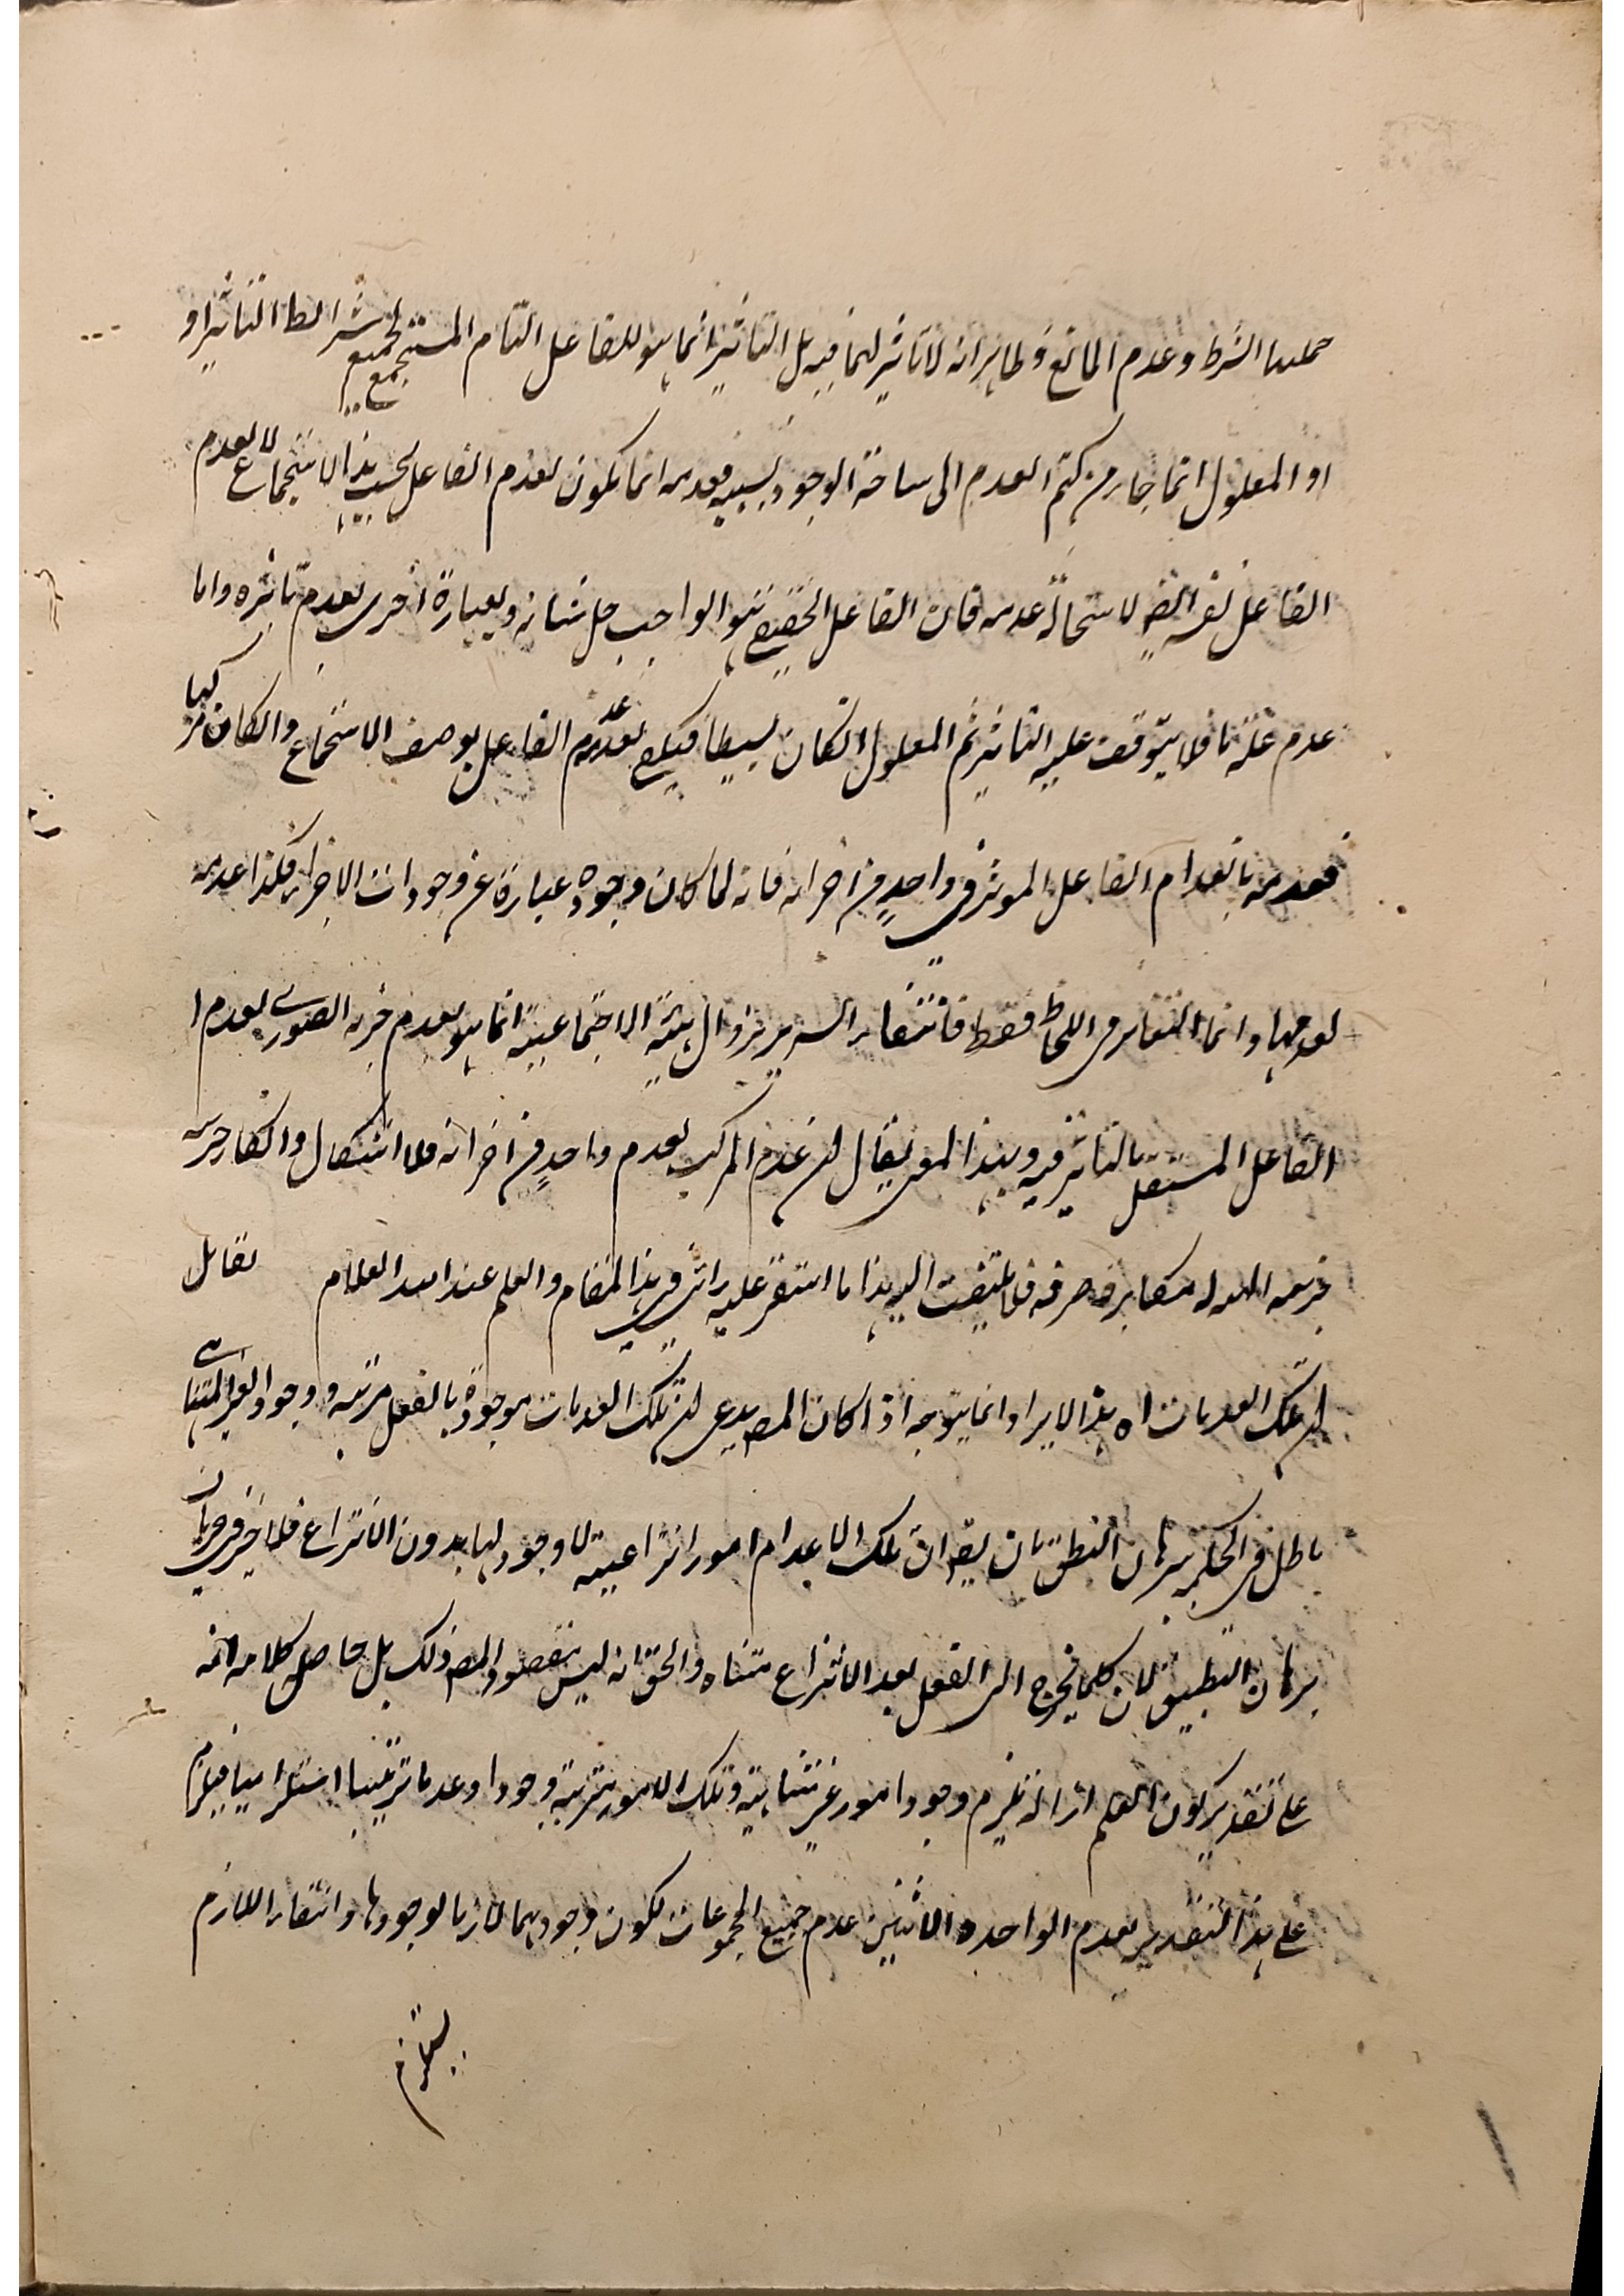 جملتها الشرط وعدم المانع وظاهر انه لا تاثير لهما فيه بل التاثير انما هو للفاعل التام المستجمع لجميع شرائط التاثير او
او المعلول انما جاء من كتم العدم الى ساحة الوجود بسببه فعدمه انما يكون لعدم الفاعل بحسب هذا الاستجماع لا لعدم
الفاعل نفسه لاستحالة عدمه فان الفاعل الحقيقي هو الواجب جل شانه وبعبارة اخرى لعدم تاثيره واما
عدم علة ما فلا يتوقف عليه التاثير ثم المعلول ان كان بسيطا فيكفي لعدمه عدم الفاعل بوصف الاستجماع وان كان مركبا
فعدمه بانعدام الفاعل الموثر في واحد من اجزائه فانه لما كان وجوده عبارة عن وجودات الاجزاء فكذا عدمه
لعدمها وانما التغاير في اللحاظ فقط فانتفاء السرير بزوال الهيئة الاجتماعية انما هو لعدم جزئه الصوري لعدم
الفاعل المستقل بالتاثير فيه وبهذا المعنى يقال ان عدم المركب لعدم واحد من اجزائه فلا اشكال وانكار
مكابرة صرفة فلا يلتفت اليه هذا ما استقر عليه رائي في هذا المقام والعلم عند العلام قال
ان تلك العدمات اه هذا الايراد انما يتوجه اذا كان المص يدعي ان تلك العدمات موجودة بالفعل مرتبة ووجود الغير المتناهي
باطل في الحكم ببرهان التطبيق بان يقال ان تلك الاعدام امور انتزاعية لا وجود لها بدون الانتزاع فلا في جريان
برهان التطبيق لان كلما يخرج الى الفعل بعد الانتزاع متناه والحق انه ليس مقصود المص ذلك بل حاصل كلامه انه
على تقدير كون العلم ازالة يلزم وجود امور غير متناهية وتلك الامور مترتبة وجودا وعدما ترتبا استلزاميا فيلزم
على هذا التقدير لعدم الواحد والاثنين عدم جميع المجموعات لكون وجودهما لازما لوجودها وانتفاء اللازم
يستلزم